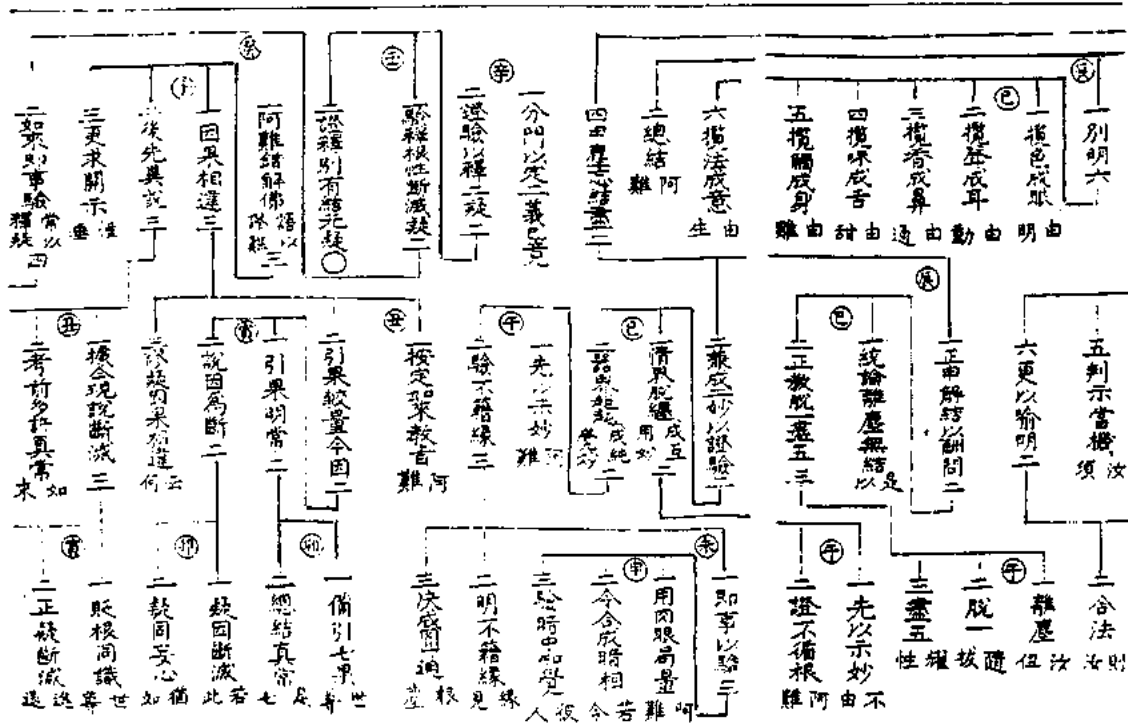 一別明六
一攬色成眼 由明
二攬聲成耳 由動
三攬香成鼻 由通
四攬味成舌 由甜
五攬觸成身 由離
六攬法成意 由生
二總結 阿難
四由塵忘結盡二
一分門以定二義
二證驗以釋二疑
驗釋根性斷滅疑二
證釋別有結元疑
阿難結解佛
一因果相違三
二後先異說三
三更求開示 惟垂
二如來即事驗常以釋疑四
五判示當機 汝須
六更以喻明二
一正申解結以酬問二
一統論離塵無結 是以
二正教脫一盡五三
二兼成二妙以證驗二
一情界脫纏成互用妙二
二器界超越成純覺妙二
一先以示妙 阿難
二驗不藉緣三
一按定如來教旨 阿難
二引果較量今因二
一引果明常二
二說因為斷二
三疑因果相違 云何
一據今現說斷滅三
二考前多許真常 如來
二合法 則汝
一離塵 汝但
二脫一 隨拔
三盡五 耀性
一先以示妙 不由
二證不循根 阿難
一即事以驗三
一用肉眼局量 阿難
二令合成暗相 若令
三驗暗中知覺 彼人
二明不藉緣 緣見
三決成圓通 根塵
一備引七果 世尊
二總結真常 是七
一疑因斷滅 若此
二疑同妄心 猶如
一貶根同識 世尊
二正疑斷滅 進退